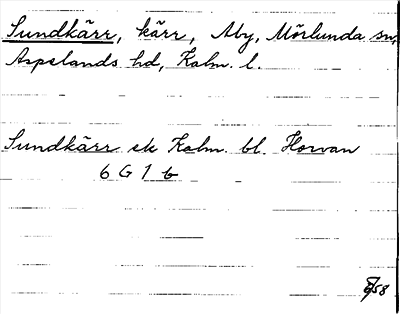 Sundkärr, kärr, Åby, Mörlunda sn,
Aspelands hd, Kalm. l.
Sundkärr ek Kalm. bl. Horvan
6 G 1 b